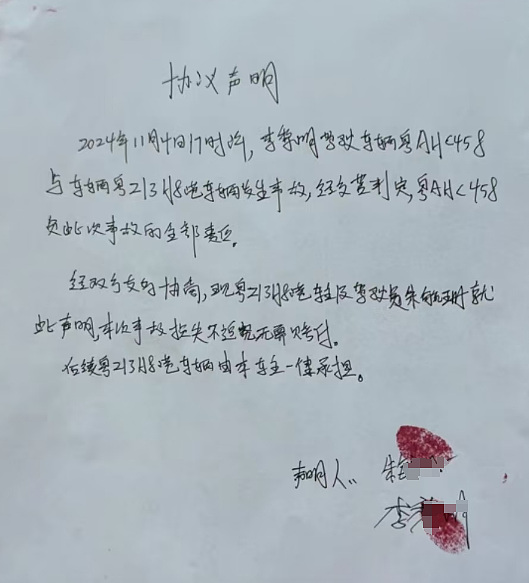 协议声明
2024年11月4日17时许,李黎明驾驶车辆粤AH<458
与车辆粤Z13H8港车辆发生事故,经交警判定,粤AH<458
负此次事故的全部责任。
经双方友的协商,现粤Z13H8港车主及驾驶员朱
此声明,本次事故损失不追无需赔付。
后续粤Z13H8港车辆由本车主一律承担。
声明人: 朱
李 明